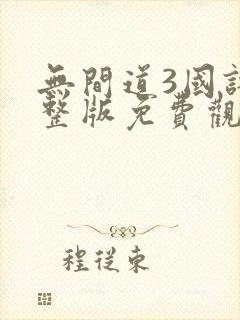 無間道3國
整版免費觀
程從東